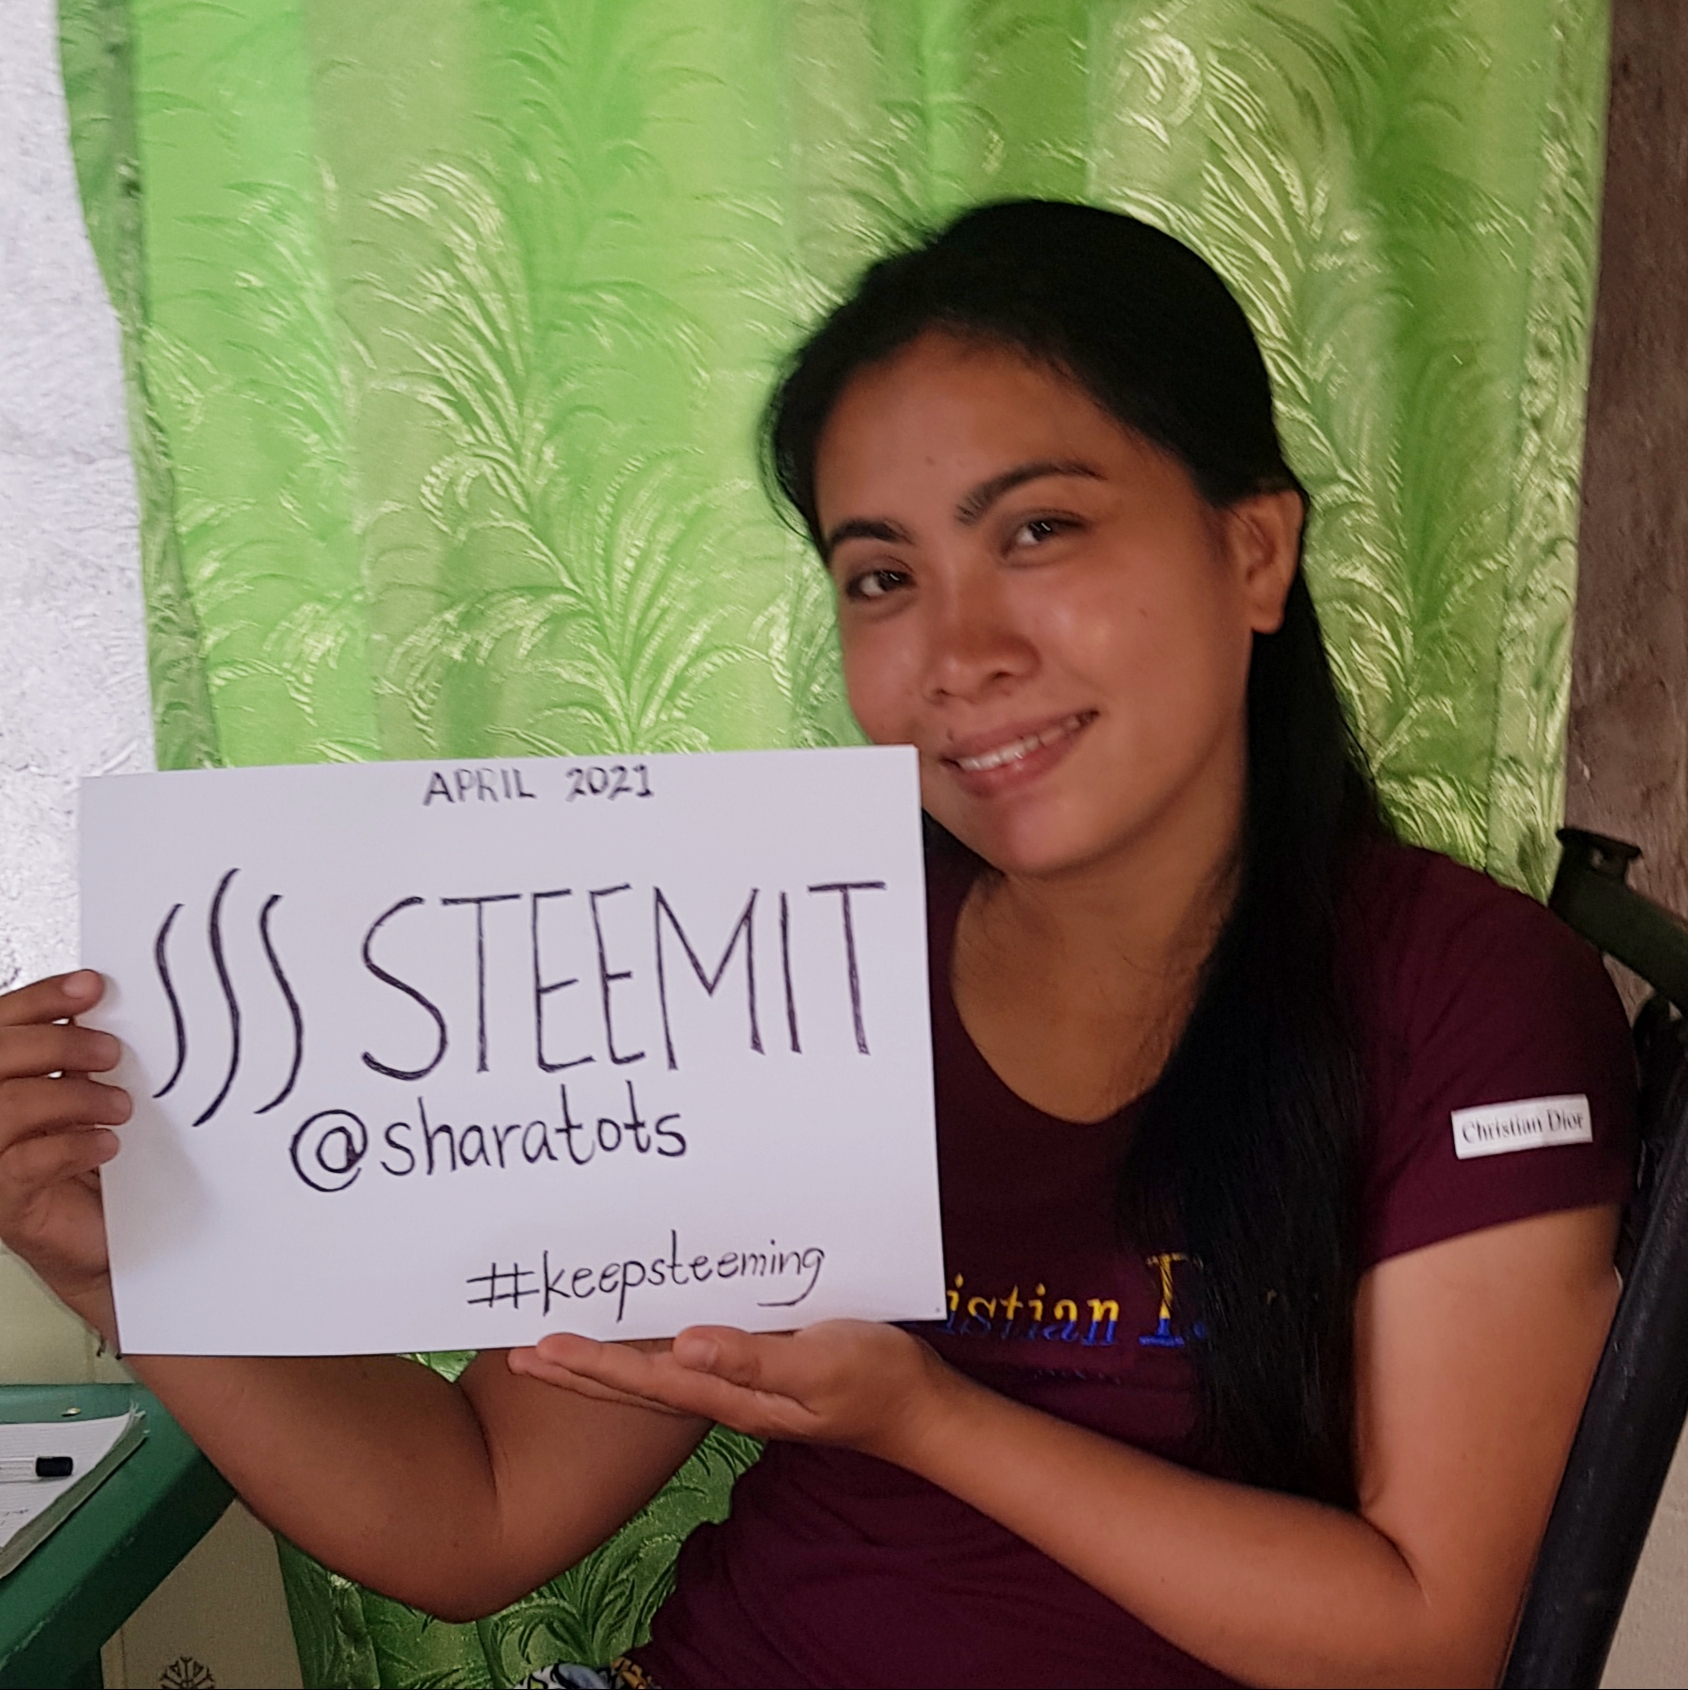 APRIL 2021
STEEMIT
@sharatots
#keepsteeming
Christian Dior
istian